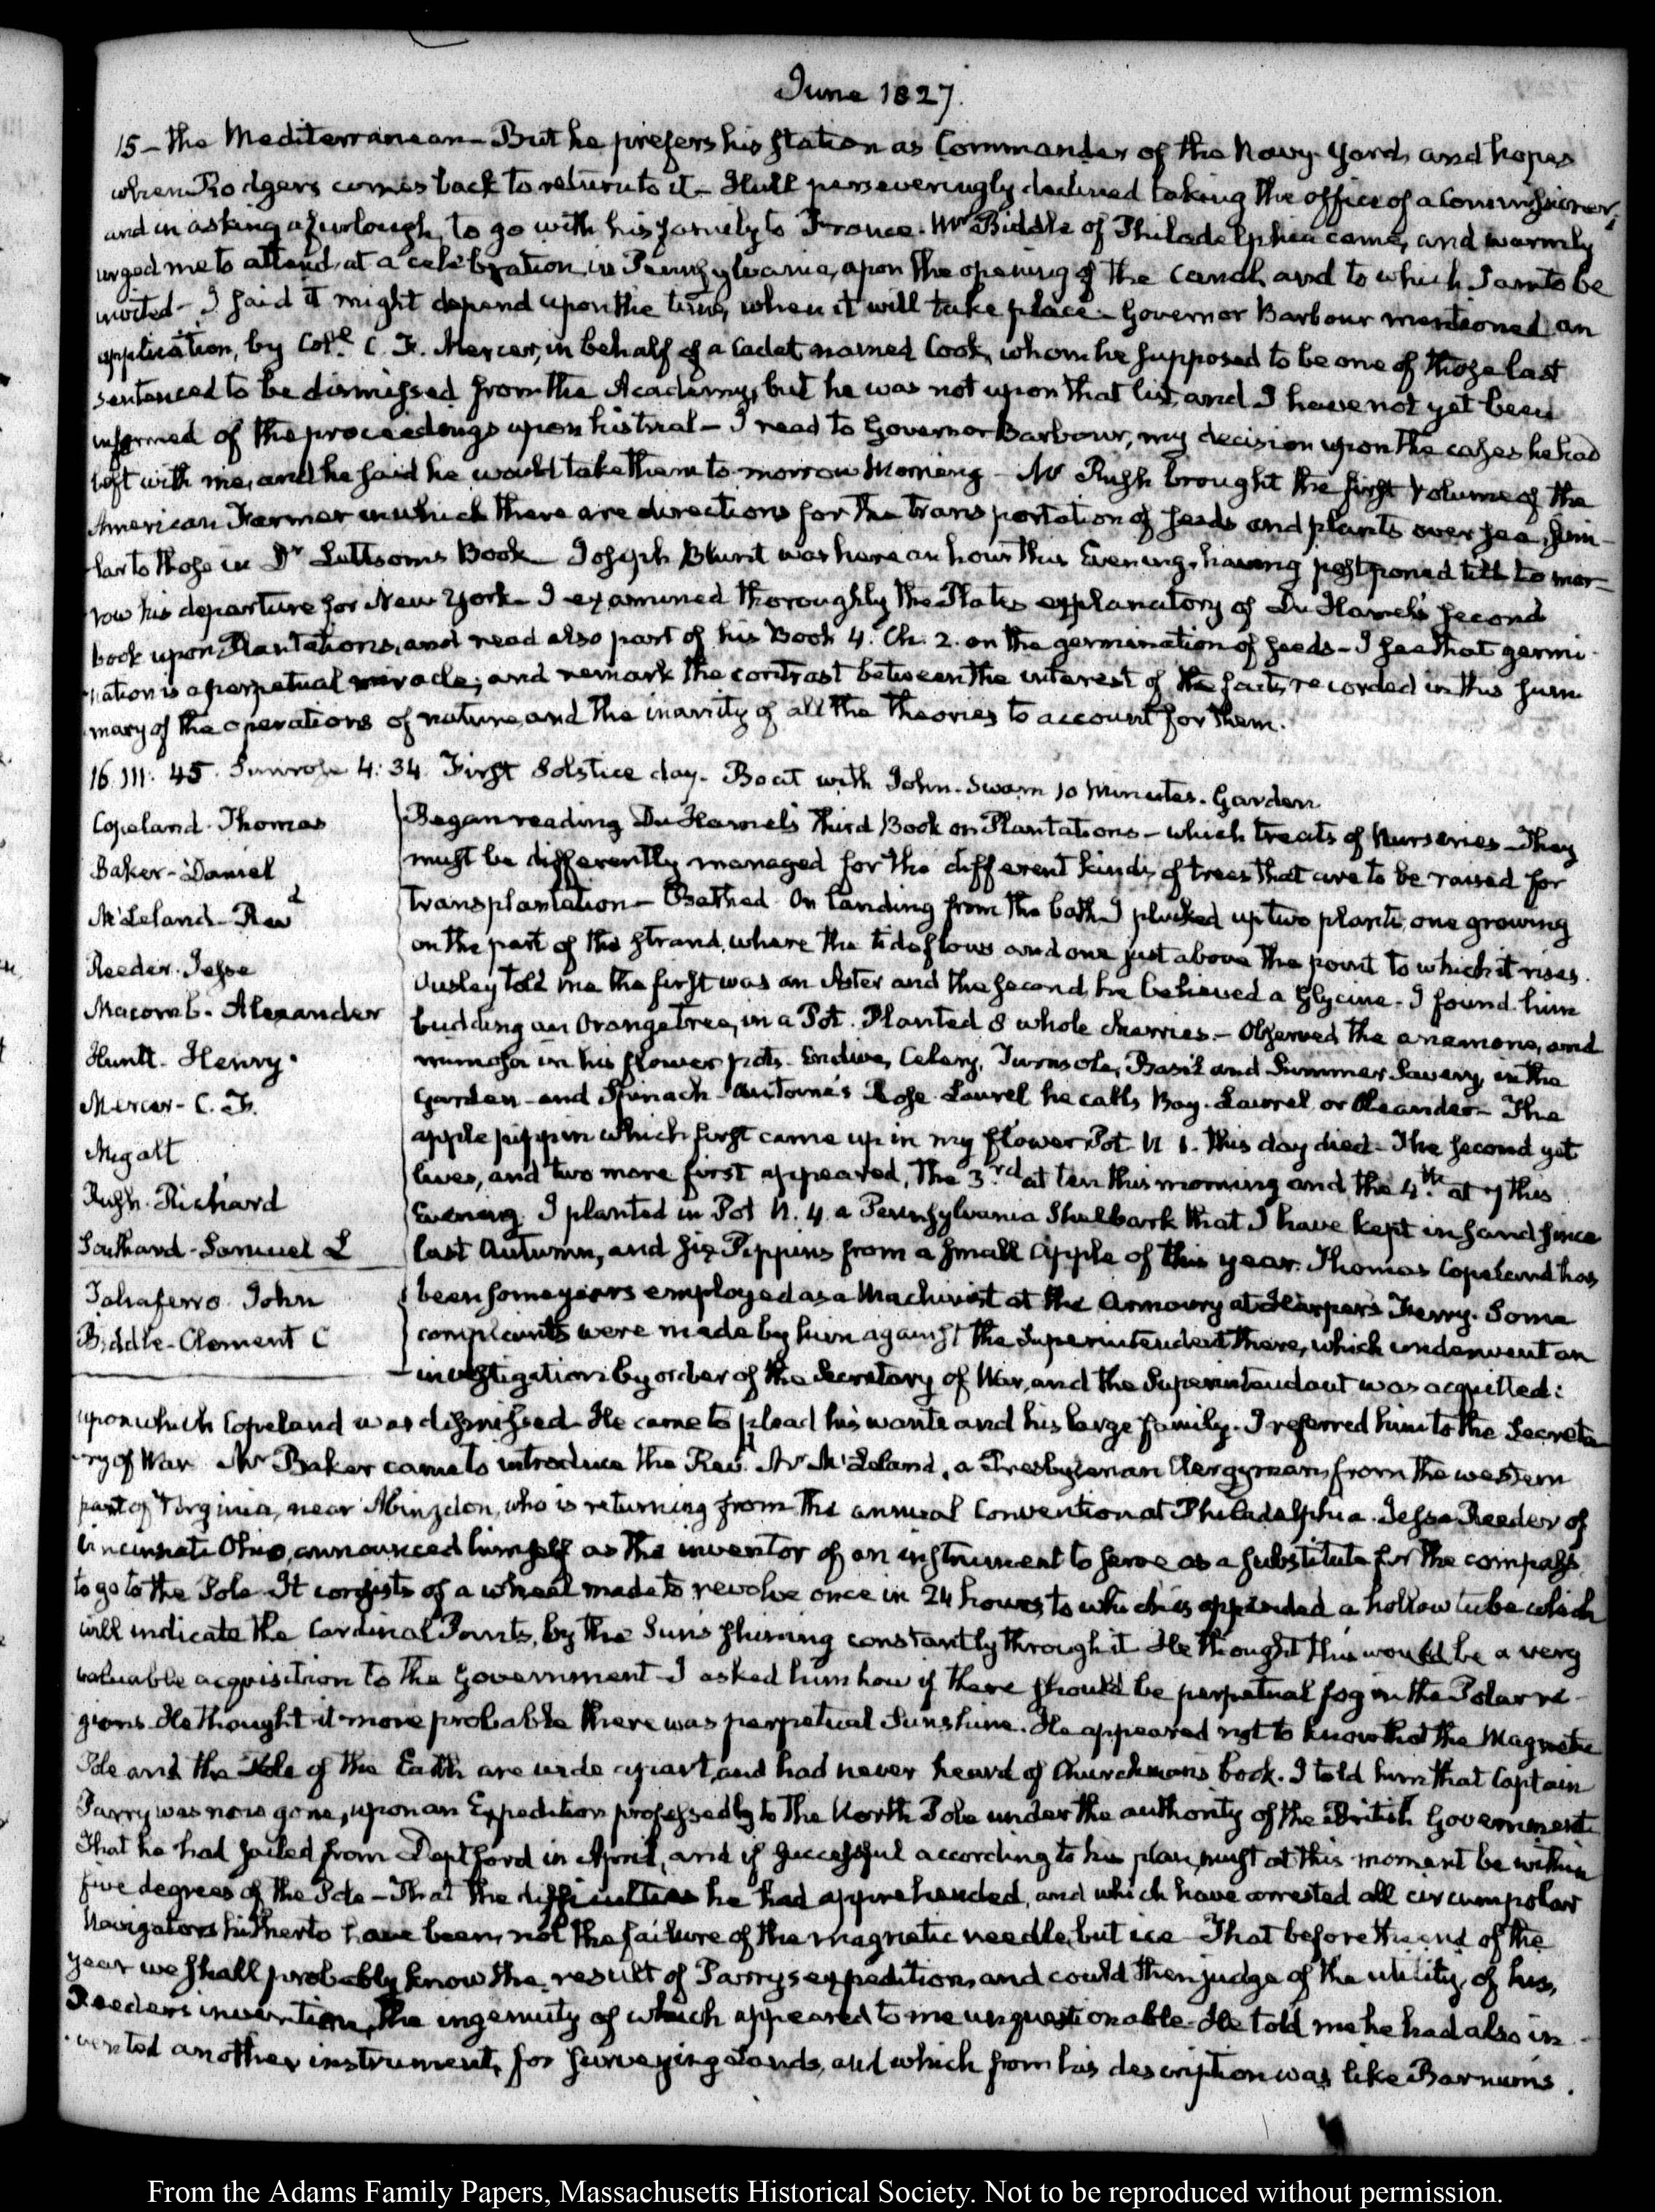 June 1827.
15 – the Mediterranean – But he prefers his station as Commander of the Navy Yard, and hopes
when Rodgers comes back to return to it – Hull perseveringly declined taking the office of a Commissioner,
and in asking a furlough, to go with his family to France. Mr Biddle of Philadelphia came, and warmly
urged me to attend, at a celebration in Pennsylvania, upon the opening of the Canal, and to which I am to be
invited – I said it might depend upon the time, when it will take place – Governor Barbour mentioned an
application, by Coll. C. F. Mercer, in behalf of a Cadet named Cook, whom he supposed to be one of those last
sentenced to be dismissed from the Academy, but he was not upon that list, and I have not yet been
informed of the proceedings upon his trial – I read to Governor Barbour, my decision upon the cases he had
left with me, and he said he would take them to-morrow Morning – Mr Rush brought the first volume of the
American Farmer in which there are directions for the transportation of seeds and plants over sea, simi-
lar to those in Dr Lettsom's Book – Joseph Blunt was here an hour this Evening, having postponed till to mor-
row his departure for New York – I examined thoroughly the Plates explanatory of Du Hamel's second
book upon Plantations, and read also part of his Book 4. Ch. 2. on the germination of seeds – I see that germi-
nation is a perpetual miracle; and remark the contrast between the interest of the facts, recorded in this sum-
mary of the operations of nature, and the inanity of all the Theories to account for them.
16. III: 45. Sunrose 4:34. First Solstice day. Boat with John. Swam 10 minutes. Garden
Copeland. Thomas
Baker – Daniel
McLeland – Revd
Reeder. Jesse
Macomb. Alexander
Huntt. Henry.
Mercer – C. F.
Migatt
Rush. Richard
Southard – Samuel L
Taliaferro John
Biddle – Clement C
Began reading Du Hamel's Third Book on Plantations – which treats of Nurseries – They
must be differently managed for the different kinds of trees that are to be raised for
transplantation – Bathed. On landing from the bath I plucked up two plants, one growing
on the part of the strand, where the tide flows and one just above the point to which it rises.
Ousley told me the first was an Aster and the second, he believed a Glycine – I found him
budding an Orange tree, in a Pot. Planted 8 whole cherries. – Observed the anemone, and
mimosa in his flower pots – Endive, Celery, Turnsole, Basil and Summer Savory, in the
Garden – and Spinach – Antoine's Rose Laurel he calls Bay-Laurel or Oleander – The
apple pippin which first came up in my flower Pot N. 1. this day died – The second yet
lives, and two more first appeared, The 3rd. at ten this morning and the 4th. at 7 this
Evening. I planted in Pot N. 4. a Pennsylvania Shelbark that I have kept in sand since
last Autumn, and six Pippins from a small apple of this year. Thomas Copeland has
been some years employed as a Machinist at the Armoury at Harper's Ferry. Some
complaints were made by him against the Superintendent there, which underwent an
investigation by order of the Secretary of War, and the Superintendent was acquitted:
upon which Copeland was dismissed – He came to plead his wants and his large family. I referred him to the Secreta-
ry of War. Mr Baker came to introduce the Revd. Mr McLeland, a Presbyterian Clergyman, from the western
part of Virginia, near Abingdon, who is returning from the annual Convention at Philadelphia. Jesse Reeder of
Cincinnati Ohio, announced himself as the inventor of an instrument to serve as a substitute for the compass
to go to the Pole – It consists of a wheel made to revolve once in 24 hours, to which is appended a hollow tube which
will indicate the Cardinal Points, by the Sun's shining constantly through it – He thought this would be a very
valuable acquisition to the Government – I asked him how if there should be perpetual fog in the Polar re-
gions. He thought it more probable there was perpetual Sunshine. He appeared not to know that the Magnetic
Pole and the Pole of the Earth are wide apart, and had never heard of Churchman's book. I told him that Captain
Parry was now gone, upon an Expedition professedly to the North Pole under the authority of the British Government
That he had sailed from Deptford in April, and if successful according to his plan, must at this moment be within
five degrees of the Pole – That the difficulties he had apprehended, and which have arrested all circumpolar
Navigators hitherto have been, not the failure of the magnetic needle, but ice – That before the end of the
year we shall probably know the result of Parry's expedition, and could then judge of the utility, of his,
Reeder's invention, the ingenuity of which appeared to me unquestionable – He told me he had also in-
vented another instrument, for surveying Lands, and which from his description was like Barnum's.
From the Adams Family Papers, Massachusetts Historical Society. Not to be reproduced without permission.